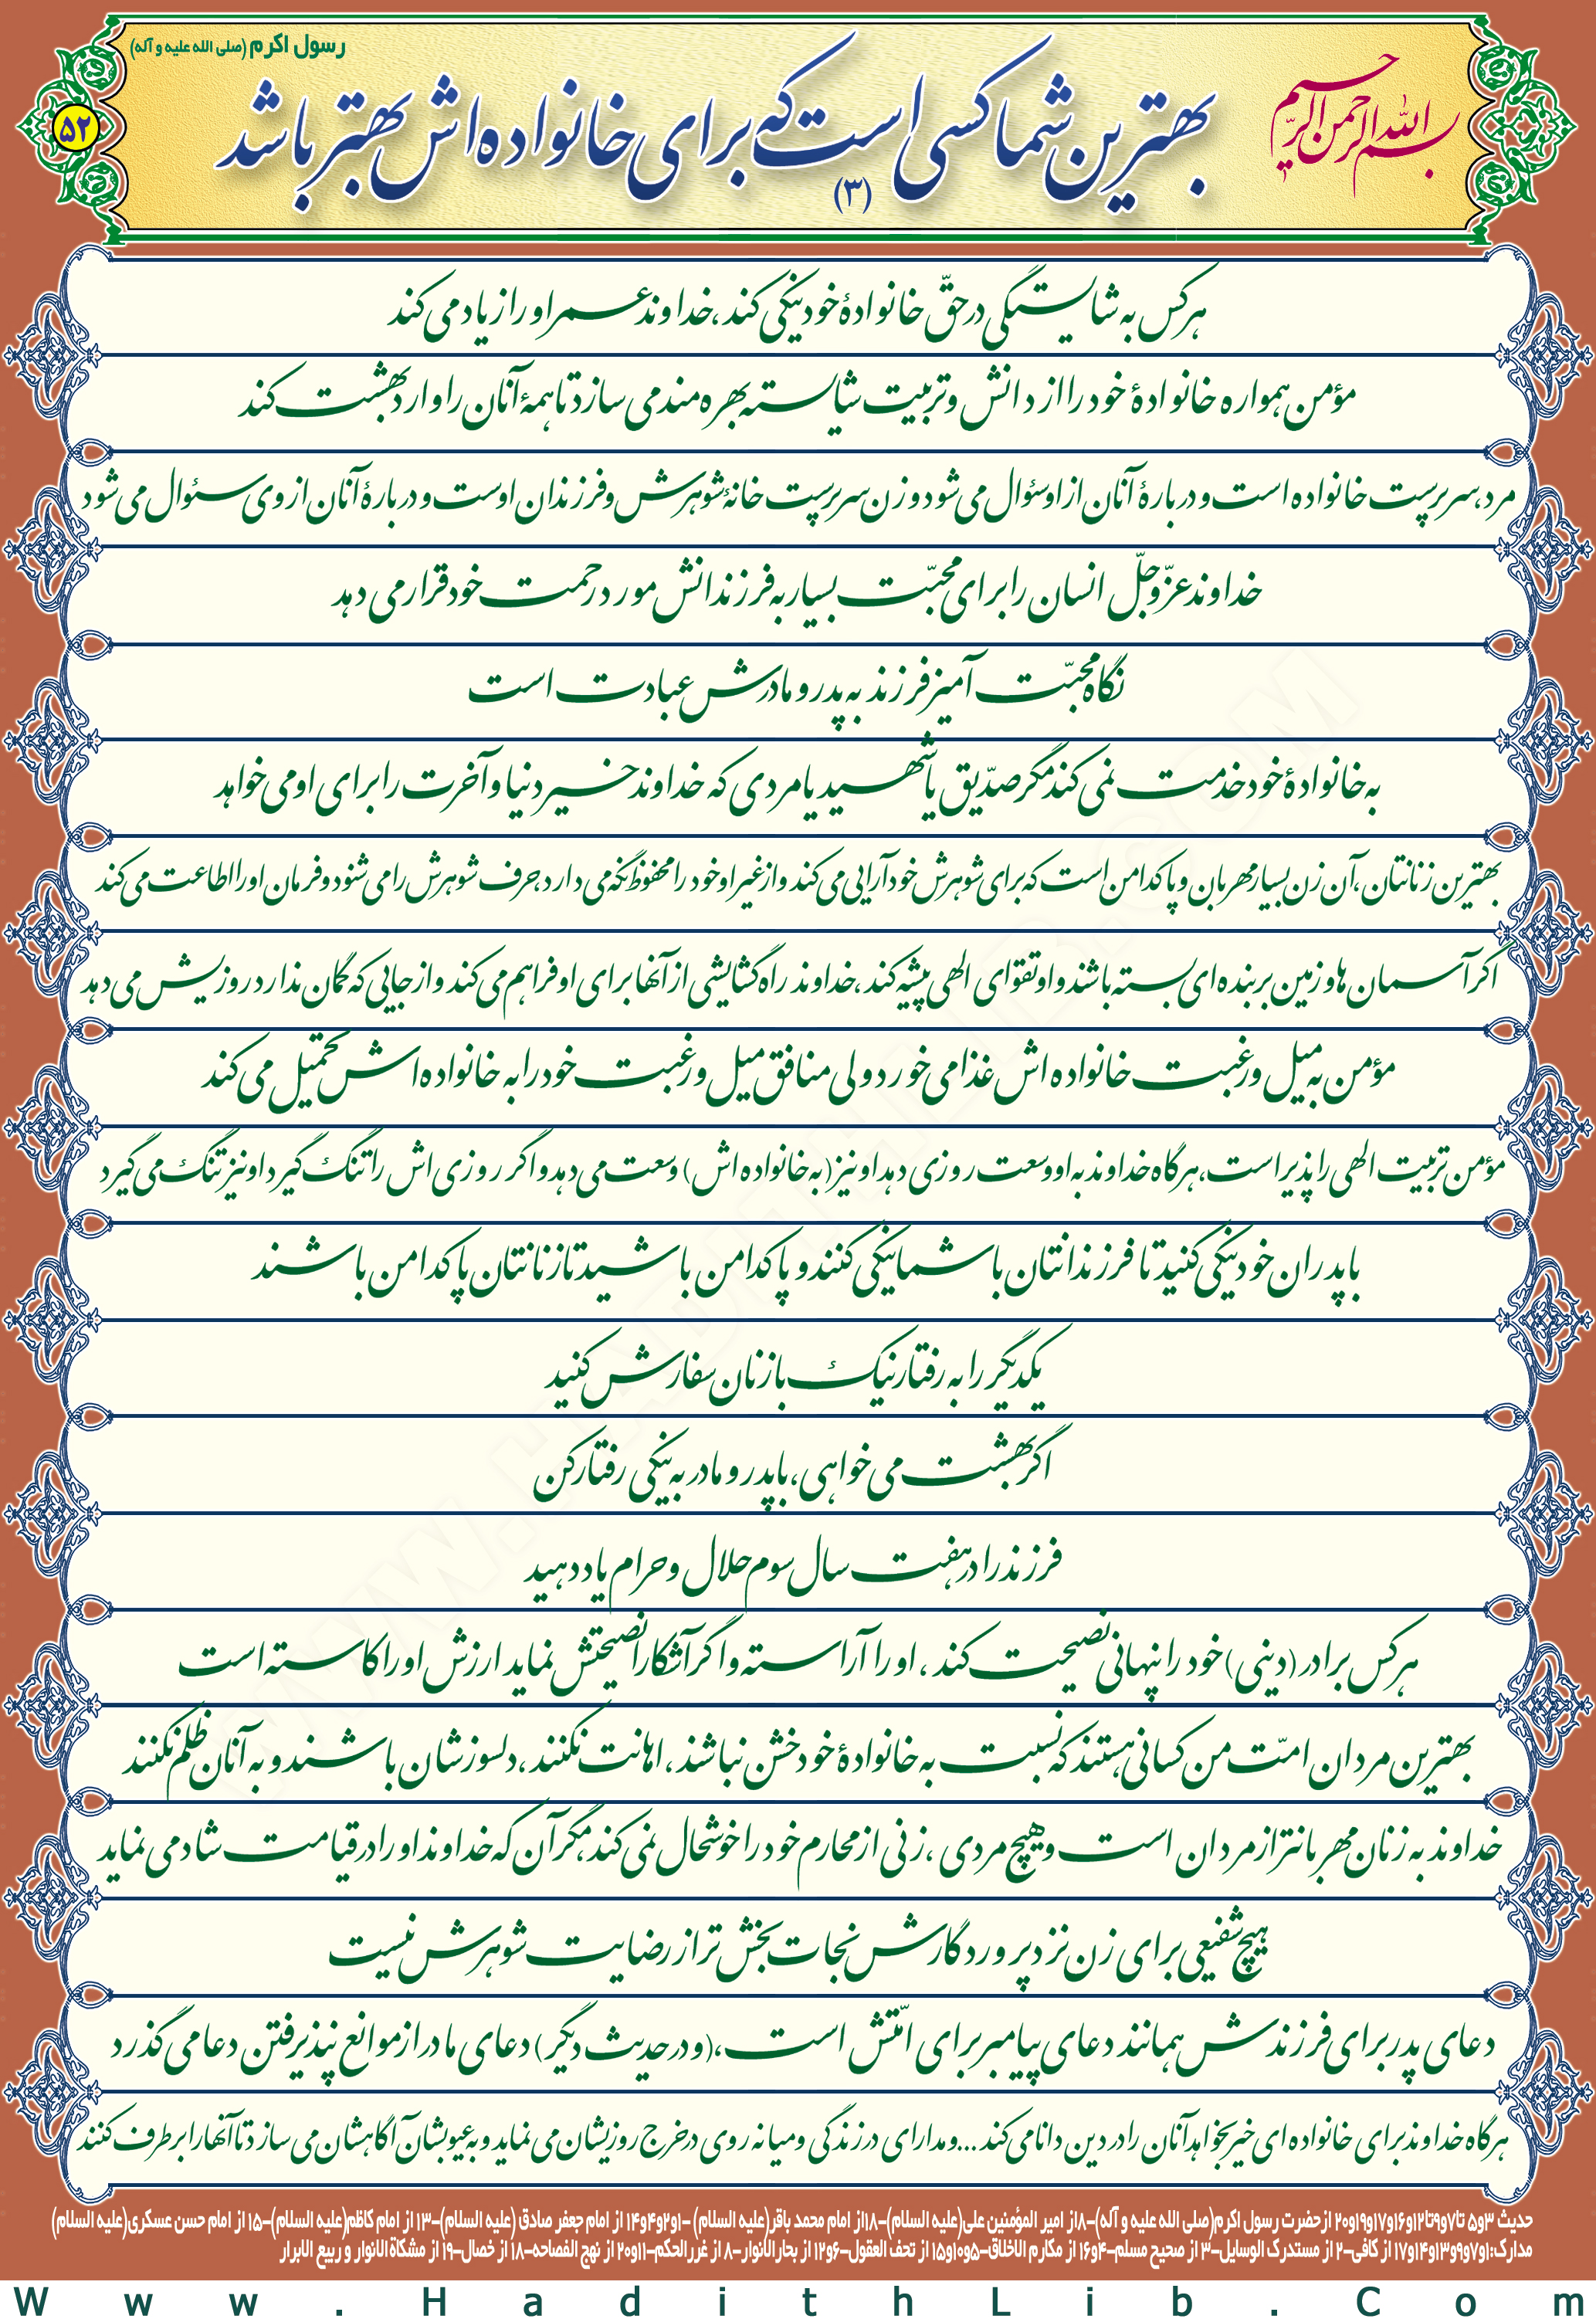 رسول اکرم (صلی الله علیه و آله)
بسم الله الرحمن الرحیم
بهترین شما کسی است که برای خانواده اش بهتر باشد
(۳)
۵۲
هر کس به شایستگی در حقّ خانوادۀ خود نیکی کند، خداوند عمر او را زیاد می کند
مؤمن همواره خانوادۀ خود را از دانش و تربیت شایسته بهره مند می سازد تا همۀ آنان را وارد بهشت کند
مرد، سرپرست خانواده است و دربارۀ آنان از او سئوال می شود و زن سرپرست خانۀ شوهرش و فرزندان اوست و دربارۀ آنان از وی سئوال می شود
خداوند عزّوجلّ انسان را برای محبّت بسیار به فرزندانش مورد رحمت خود قرار می دهد
نگاه محبّت آمیز فرزند به پدر و مادرش عبادت است
به خانوادۀ خود خدمت نمی کند مگر صدّیق یا شهید یا مردی که خداوند خیر دنیا و آخرت را برای او می خواهد
بهترین زنانتان، آن زن بسیار مهربان و پاکدامن است که برای شوهرش خودآرایی می کند و از غیر او خود را محفوظ نگه می دارد، حرف شوهرش را می شنود و فرمان او را اطاعت می کند
اگر آسمان ها و زمین بر بنده ای بسته باشند و او تقوای الهی پیشه کند، خداوند راه گشایشی از آنها برای او فراهم می کند و از جایی که گمان ندارد روزیش می دهد
مؤمن به میل و رغبت خانواده اش غذا می خورد ولی منافق میل و رغبت خود را به خانواده اش تحمیل می کند
مؤمن تربیت الهی را پذیر است، هر گاه خداوند به او وسعت روزی دهد او نیز (به خانواده اش) وسعت می دهد و اگر روزی اش را تنگ گیرد او نیز تنگ می گیرد
با پدران خود نیکی کنید تا فرزندانتان با شما نیکی کنند و پاکدامن باشید تا زنانتان پاکدامن باشند
یکدیگر را به رفتار نیک با زنان سفارش کنید
اگر بهشت می خواهی، با پدر و مادر به نیکی رفتار کن
فرزند را در هفت سال سوم حلال و حرام یاد دهید
هر کس برادر (دینی) خود را نهانی نصیحت کند، او را آراسته و اگر آشکارا نصیحتش نماید ارزش او را کاسته است
بهترین مردان امّت من کسانی هستند که نسبت به خانوادۀ خود خشن نباشند، اهانت نکنند، دلسوزشان باشند و به آنان ظلم نکنند
خداوند به زنان مهربانتر از مردان است و هیچ مردی، زنی از محارم خود را خوشحال نمی کند، مگر آن که خداوند او را در قیامت شاد می نماید
هیچ شفیعی برای زن نزد پروردگارش نجات بخش تر از رضایت شوهرش نیست
دعای پدر برای فرزندش همانند دعای پیامبر برای امّتش است، (و در حدیث دیگر) دعای مادر از موانع نپذیرفتن دعا می گذرد
هر گاه خداوند برای خانواده ای خیر بخواهد آنان را در دین دانا می کند ... و مدارای در زندگی و میانه روی در خرج روزیشان می نماید و به عیوبشان آگاهشان می سازد تا آنها را برطرف کنند
حدیث ۳و۵ تا۷و۹تا۱۲و۱۶و۱۷و۱۹و۲۰ ازحضرت رسول اکرم(صلی الله علیه و آله)-۸از امیر المؤمنین علی(علیه السلام)-۱۸از امام محمد باقر(علیه السلام) -۱و۲و۴و۱۴ از امام جعفر صادق (علیه السلام)-۱۳ از امام کاظم(علیه السلام)-۱۵ از امام حسن عسکری(علیه السلام)
مدارک:۱و۷و۹و۱۳و۱۴و۱۷ از کافی-۲ از مستدرک الوسایل-۳ از صحیح مسلم-۴و۱۶ از مکارم الاخلاق-۵و۱۰و۱۵ از تحف العقول-۶و۱۲ از بحارالانوار-۸ از غررالحکم-۱۱و۲۰ از نهج الفصاحه-۱۸ از خصال-۱۹ از مشکاة الانوار و ربیع الابرار
Www.HadithLib.Com